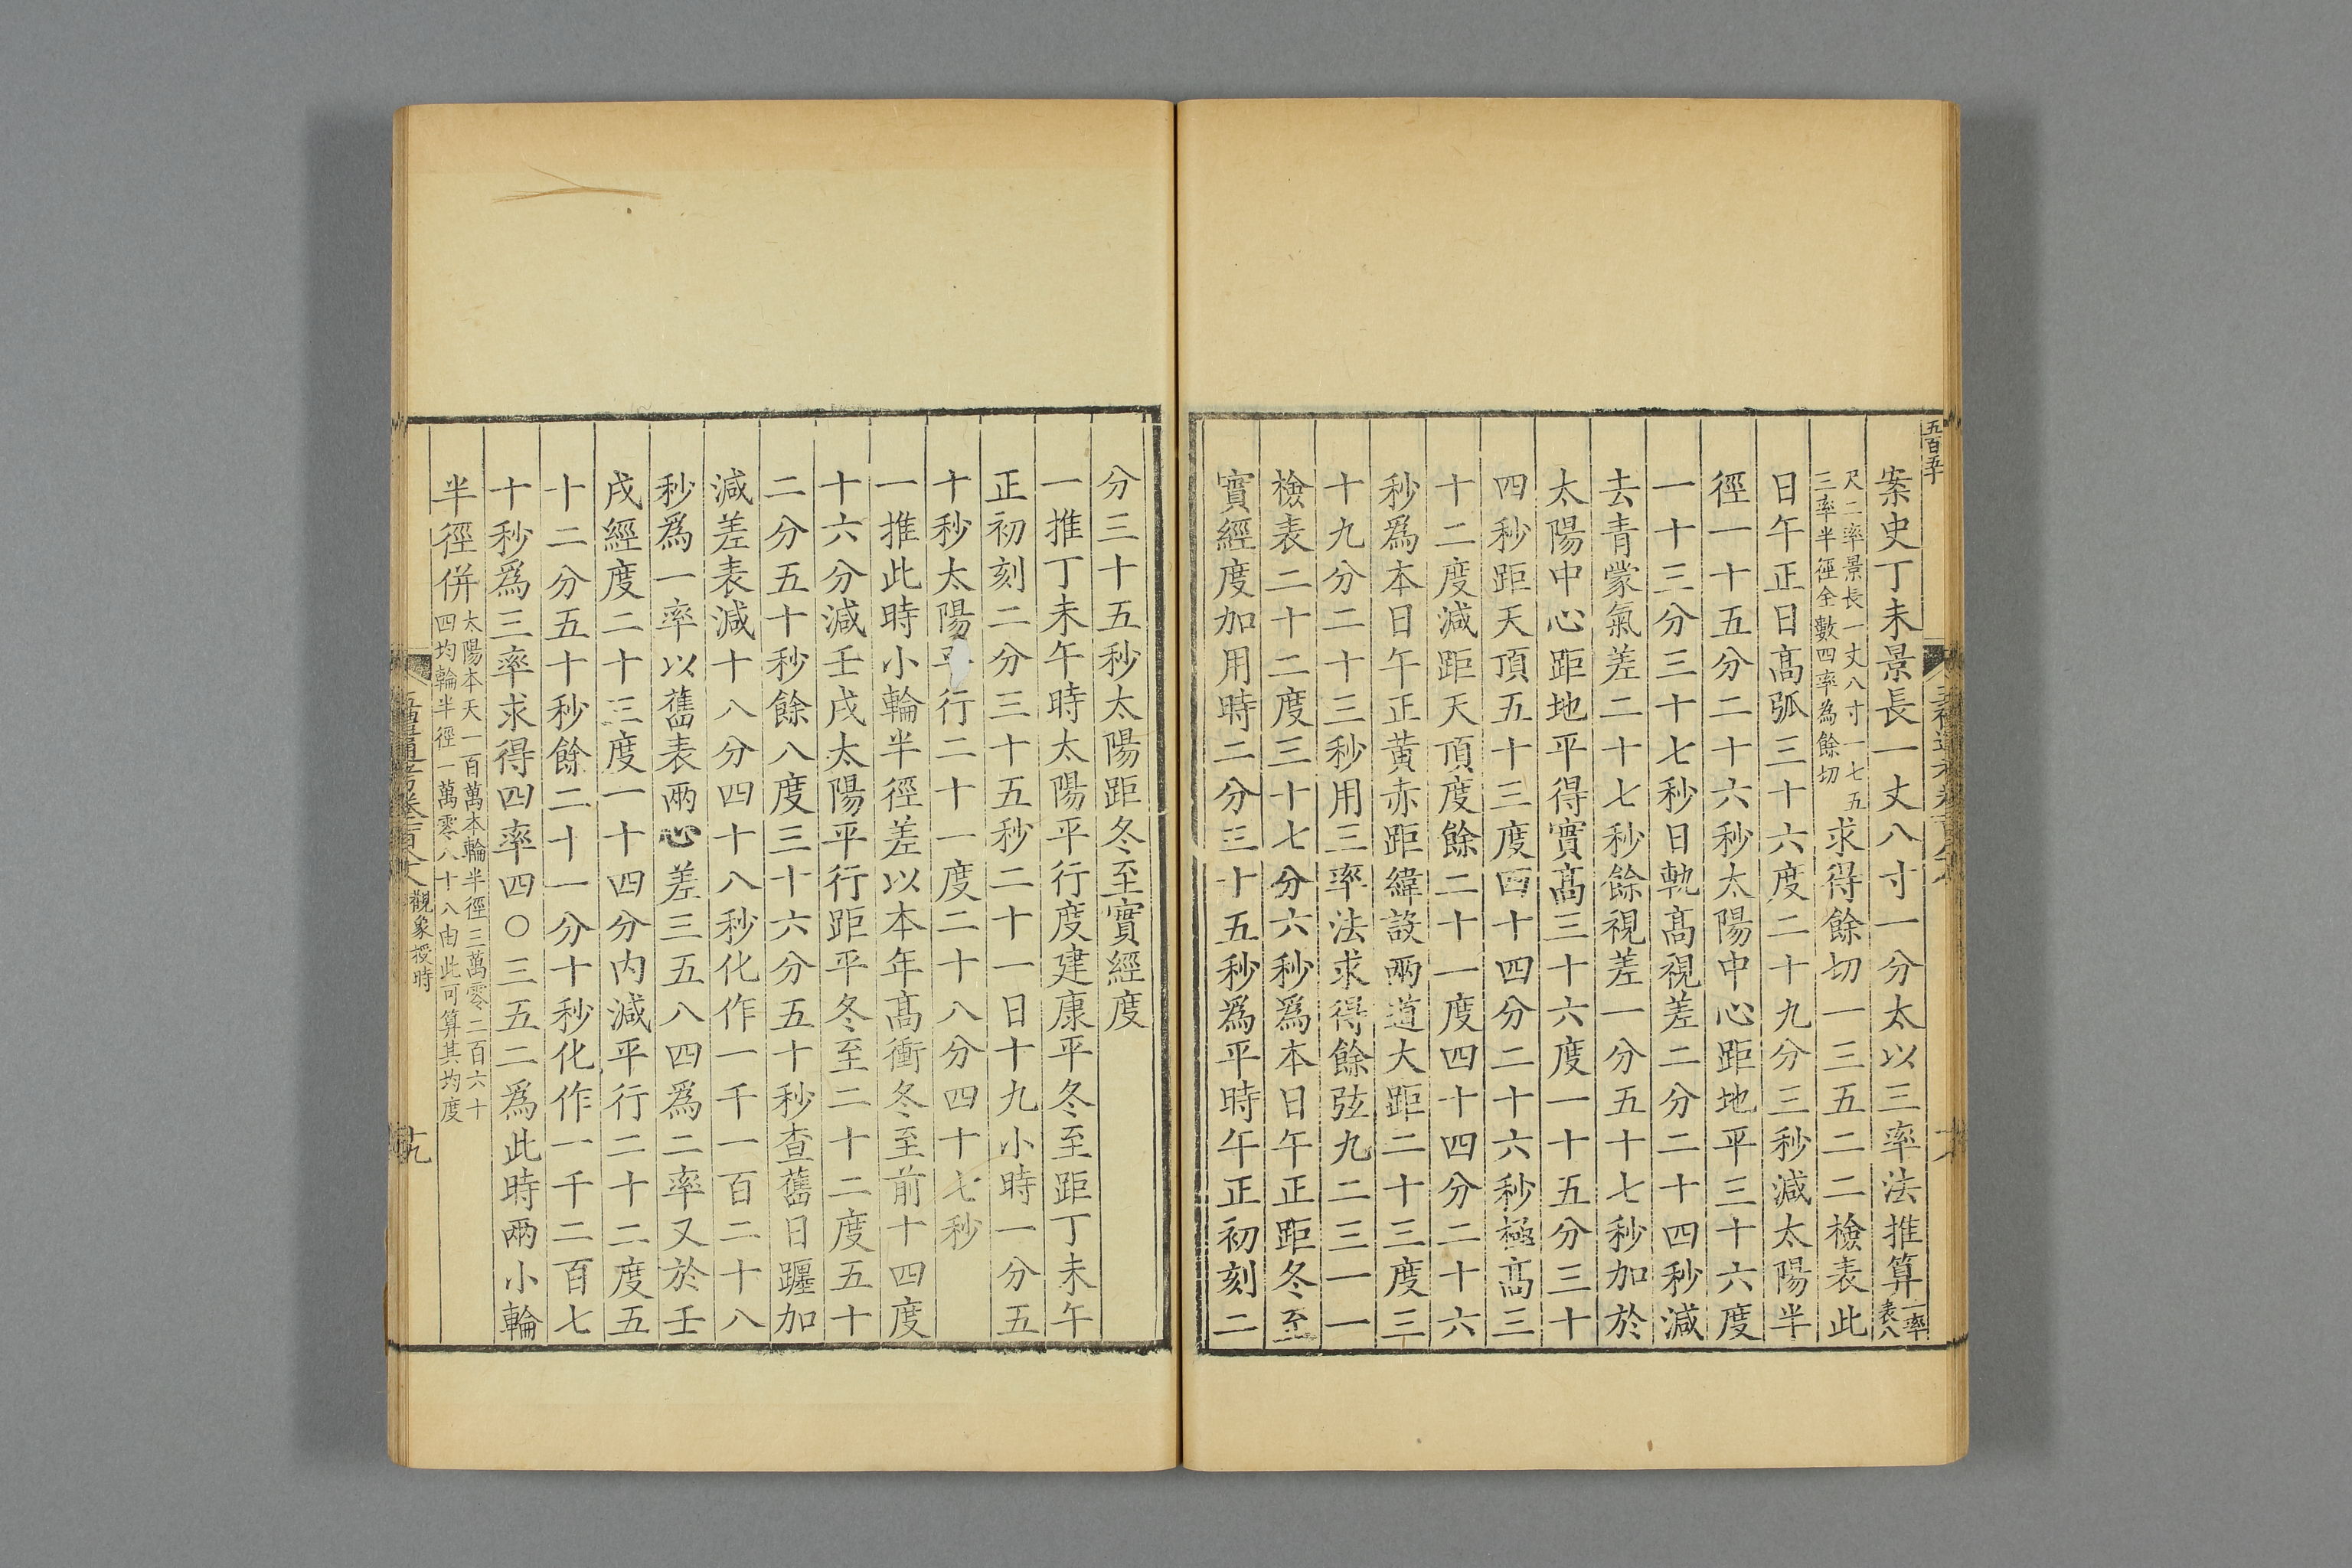 五百五十
案史丁未景長一丈八寸一分太以三率法推算一率表八
尺二率景長一丈八寸一七五
三率半徑全數四率為餘切
求得餘切一三五二二檢表此
日午正日高弧三十六度二十九分三秒減太陽半
徑一十五分二十六秒太陽中心距地平三十六度
一十三分三十七秒日軌高視差二分二十四秒減
去青蒙氣差二十七秒餘視差一分五十七秒加於
太陽中心距地平得實高三十六度一十五分三十
四秒距天頂五十三度四十四分二十六秒極高三
十二度減距天頂度餘二十一度四十四分二十六
秒爲本日午正黃赤距緯設兩道大距二十三度三
十九分二十三秒用三率法求得餘弦九二三一一
檢表二十二度三十七分六秒爲本日午正距冬至
實經度加用時二分三十五秒爲平時午正初刻二
分三十五秒太陽距冬至實經度
一推丁未午時太陽平行度建康平冬至距丁未午
正初刻二分三十五秒二十一日十九小時一分五
十秒太陽平行二十一度二十八分四十七秒
一推此時小輪半徑差以本年高衝冬至前十四度
十六分減壬戌太陽平行距平冬至二十二度五十
二分五十秒餘八度三十六分五十秒查舊日躔加
減差表減十八分四十八秒化作一千一百二十八
秒爲一率以舊表兩心差三五八四爲二率又於壬
戌經度二十三度一十四分內減平行二十二度五
十二分五十秒餘二十一分十秒化作一千二百七
十秒爲三率求得四率四〇三五二爲此時兩小輪
半徑併
太陽本天一百萬本輪半徑三萬零二百六十
四均輪半徑一萬零八十八由此可算其均度
觀象授時
十九